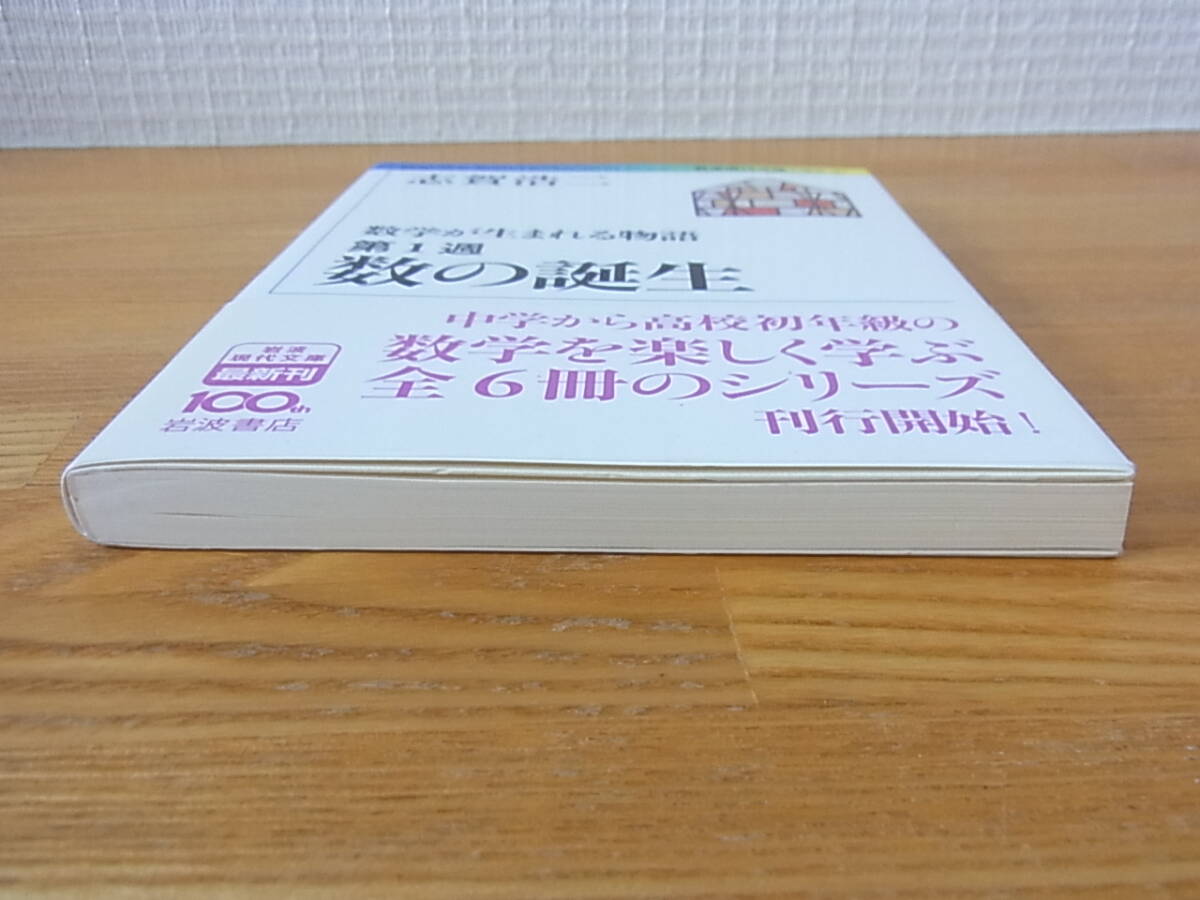 志賀浩二
数学が生まれる物語
第1週
数の誕生
中学から高校初年級の
数学を楽しく学ぶ
全6冊のシリーズ
刊行開始！
岩波
現代文庫
最新刊
100th
岩波書店